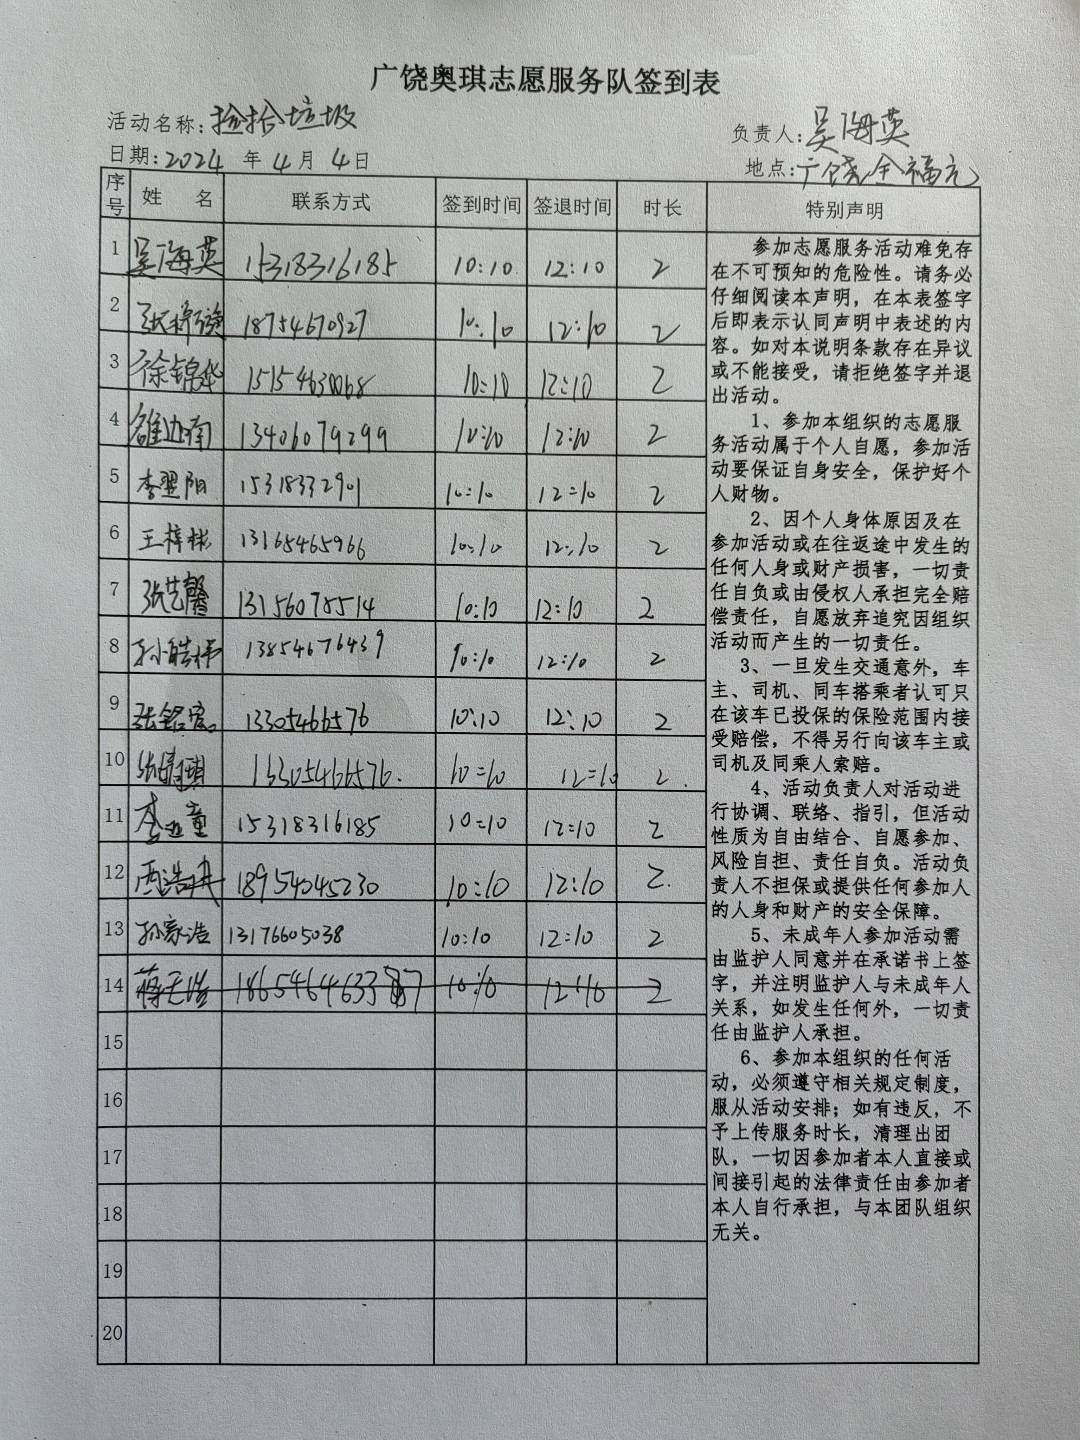 广饶奥琪志愿服务队签到表
活动名称:捡拾垃圾
负责人:吴海英
日期:2024年4月4日
地点:广饶全福元
序号 姓 名 联系方式 签到时间 签退时间 时长 特别声明
1 吴海英 15318316185 10:10 12:10 2
2 18754670927 10:10 12:10 2
3 徐锦华 15154630068 10:10 12:10 2
4 13406079299 10:10 12:10 2
5 李翌阳 15318332901 10:10 12:10 2
6 王梓彬 13165465966 10:10 12:10 2
7 张艺馨 13156075514 10:10 12:10 2
8 孙皓祎 13854676439 10:10 12:10 2
9 张铭宸 13305466576 10:10 12:10 2
10 13305466576. 10=10 12=10 2.
11 李亚童 15318316185 10=10 12=10 2
12 18954045230 10:10 12:10 2.
13 孙家浩 13176605038 10:10 12:10 2
14 10:10 12:10 2
15
16
17
18
19
20
参加志愿服务活动难免存
在不可预知的危险性。请务必
仔细阅读本声明，在本表签字
后即表示认同声明中表述的内
容。如对本说明条款存在异议
或不能接受，请拒绝签字并退
出活动。
1、参加本组织的志愿服
务活动属于个人自愿，参加活
动要保证自身安全，保护好个
人财物。
2、因个人身体原因及在
参加活动或在往返途中发生的
任何人身或财产损害，一切责
任自负或由侵权人承担完全赔
偿责任，自愿放弃追究因组织
活动而产生的一切责任。
3、一旦发生交通意外，车
主、司机、同车搭乘者认可只
在该车已投保的保险范围内接
受赔偿，不得另行向该车主或
司机及同乘人索赔。
4、活动负责人对活动进
行协调、联络、指引，但活动
性质为自由结合、自愿参加、
风险自担、责任自负。活动负
责人不担保或提供任何参加人
的人身和财产的安全保障。
5、未成年人参加活动需
由监护人同意并在承诺书上签
字，并注明监护人与未成年人
关系，如发生任何外，一切责
任由监护人承担。
6、参加本组织的任何活
动，必须遵守相关规定制度，
服从活动安排；如有违反，不
予上传服务时长，清理出团
队，一切因参加者本人直接或
间接引起的法律责任由参加者
本人自行承担，与本团队组织
无关。